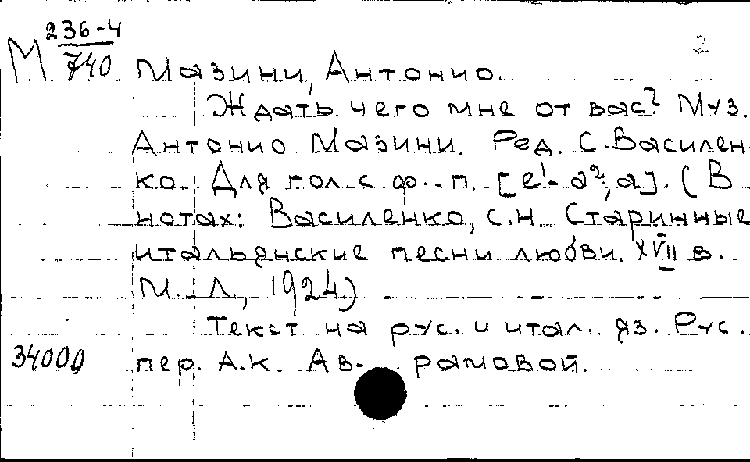 236-4
М 740
2
Мазини, Антонио.
Ждать чего мне от вас? Муз.
Антонио Мазини. Ред. С. Василен-
ко. Для гол. с ф.-п. [e¹-a², a]. (В
нотах: Василенко, С.Н. Старинные
итальянские песни любви. XVII в.
М.-Л., 1924)
Текст на рус. и итал. яз. Рус.
34000 пер. А.К. Ав- рамовой.